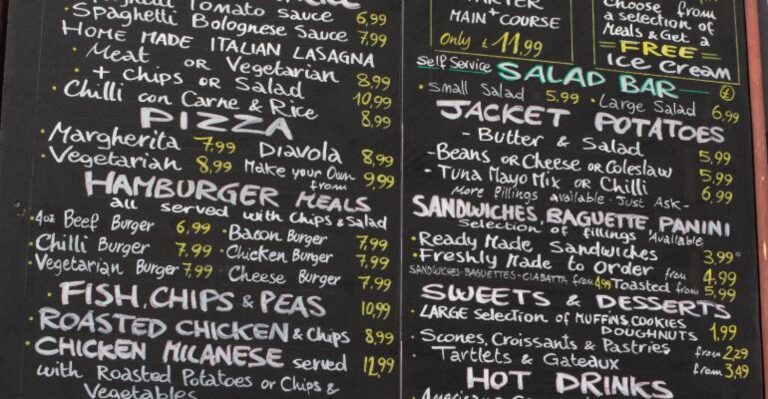 Tomato sauce 6,99
• Spaghetti Bolognese Sauce 7,99
HOME MADE ITALIAN LASAGNA
• Meat OR Vegetarian 8,99
+ Chips OR Salad 10,99
• Chilli con Carne & Rice 8,99
PIZZA
• Margherita 7,99 Diavola 8,99
• Vegetarian 8,99 Make your Own from 9,99
HAMBURGER MEALS
all served with Chips & Salad
• 4oz Beef Burger 6,99 • Bacon Burger 7,99
• Chilli Burger 7,99 • Chicken Burger 7,99
• Vegetarian Burger 7,99 Cheese Burger 7,99
• FISH, CHIPS & PEAS 10,99
• ROASTED CHICKEN & Chips 8,99
• CHICKEN MILANESE served 12,99
with Roasted Potatoes or Chips &
Vegetables
MAIN + COURSE
Only £ 11,99
Choose from
a selection of
Meals & Get a
= FREE =
Ice Cream
Self Service SALAD BAR £
• Small Salad 5,99 • Large Salad 6,99
JACKET POTATOES
- Butter & Salad 5,99
- Beans OR Cheese OR Coleslaw 5,99
- Tuna Mayo Mix OR Chilli 6,99
More fillings available - Just Ask -
SANDWICHES, BAGUETTE, PANINI
Selection of fillings Available
• Ready Made Sandwiches 3,99
• Freshly Made to Order from 4,99
SANDWICHES - BAGUETTES - CIABATTA from 4,99 Toasted from 5,99
SWEETS & DESSERTS
• LARGE Selection of MUFFINS, COOKIES
DOUGHNUTS 1,99
• Scones, Croissants & Pastries from 2,29
• Tartlets & Gateaux from 3,49
HOT DRINKS